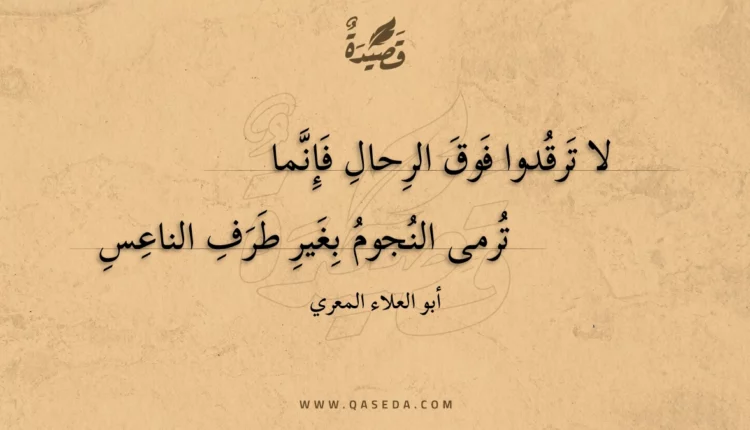 قَصِيدَةٌ
لا تَرقُدوا فَوقَ الرِحالِ فَإِنَّما
تُرمى النُجومُ بِغَيرِ طَرَفِ الناعِسِ
أبو العلاء المعري
WWW.QASEDA.COM